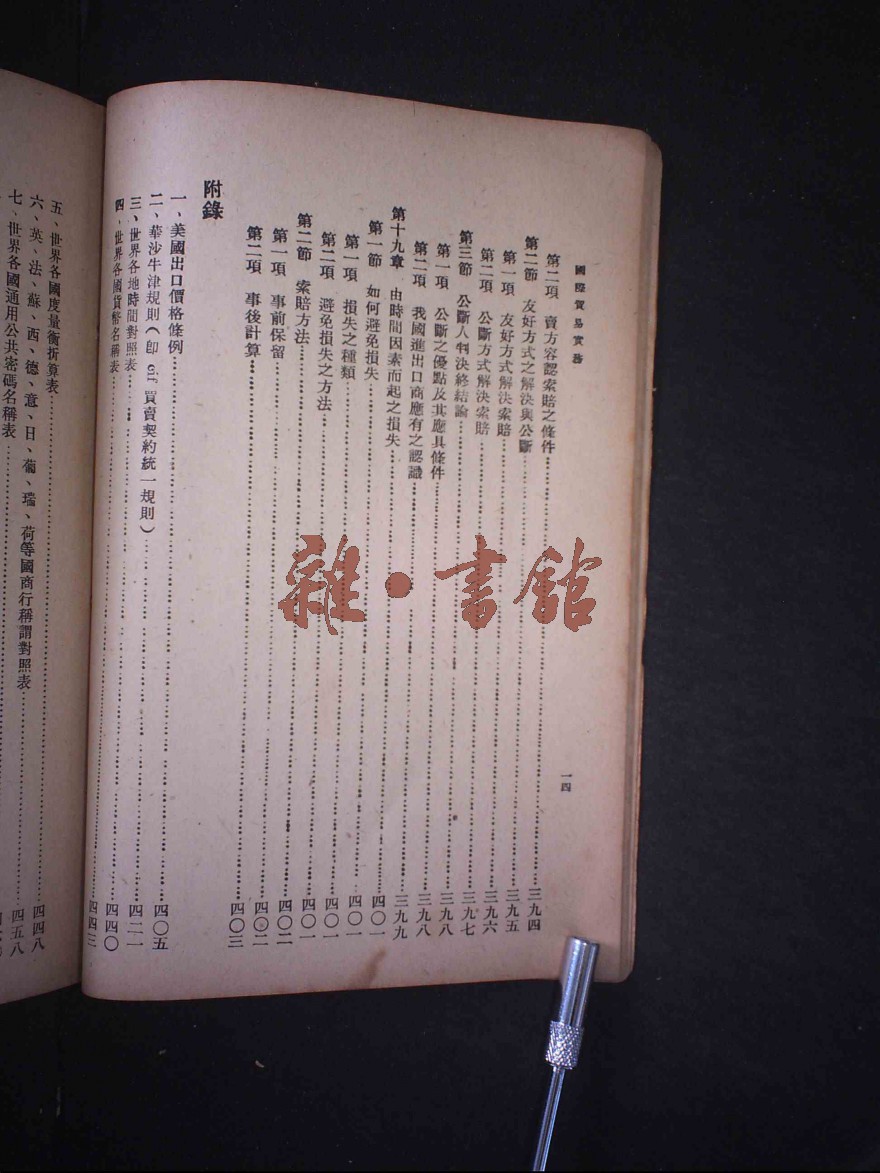 國際貿易實務
一四
第二項　賣方容認索賠之條件……三九四
第二節　友好方式之解決與公斷……三九五
第一項　友好方式解決索賠……三九六
第二項　公斷方式解決索賠……三九七
第三節　公斷人判決終結論……三九八
第一項　公斷之優點及其應具條件……三九八
第二項　我國進出口商應有之認識……三九九
第十九章　由時間因素而起之損失……四〇一
第一節　如何避免損失……四〇一
第一項　損失之種類……四〇一
第二項　避免損失之方法……四〇一
第二節　索賠方法……四〇二
第一項　事前保留……四〇二
第二項　事後計算……四〇三
附錄
一、美國出口價格條例……四〇五
二、華沙牛津規則（卽 cif 買賣契約統一規則）……四二一
三、世界各地時間對照表……四四〇
四、世界各國貨幣名稱表……四四三
五、世界各國度量衡折算表……四四八
六、英、法、蘇、西、德、意、日、葡、瑞、荷等國商行稱謂對照表……四五八
七、世界各國通用公共密碼名稱表……
雜·書館